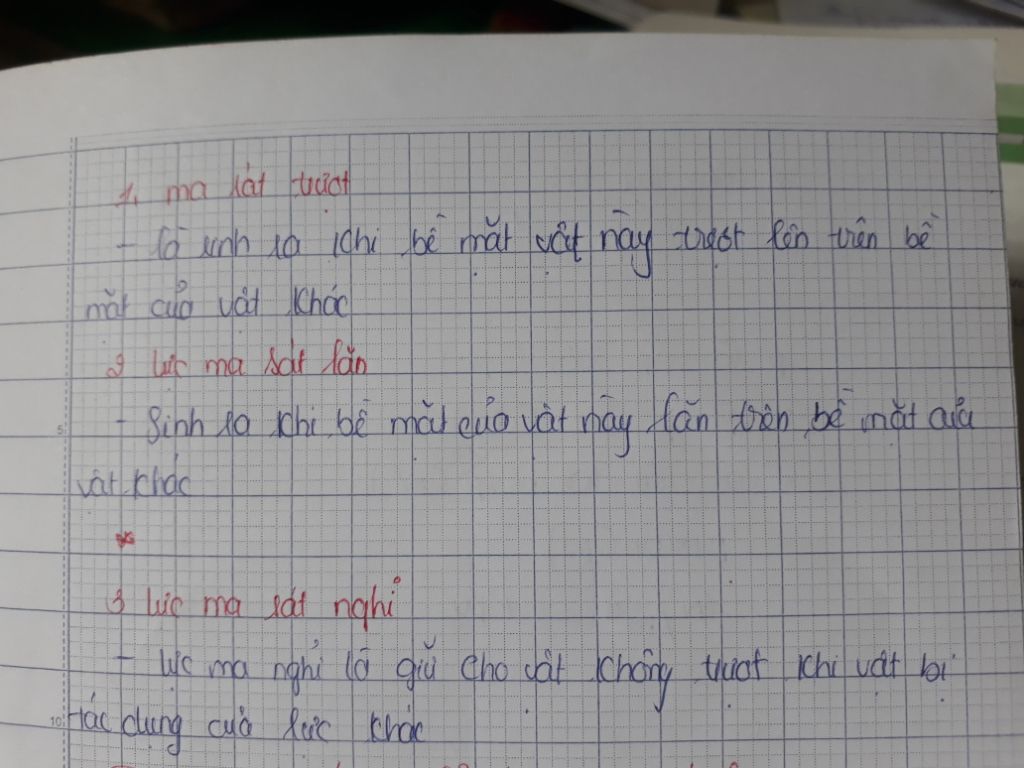 1, ma sát trượt
- là sinh ra khi bề mặt vật này trượt lên trên bề
mặt của vật khác
2 lực ma sát lăn
- Sinh ra khi bề mặt của vật này lăn trên bề mặt của
vật khác
3 lực ma sát nghỉ
- lực ma nghỉ là giữ cho vật không trượt khi vật bị
tác dụng của lực khác
5
10